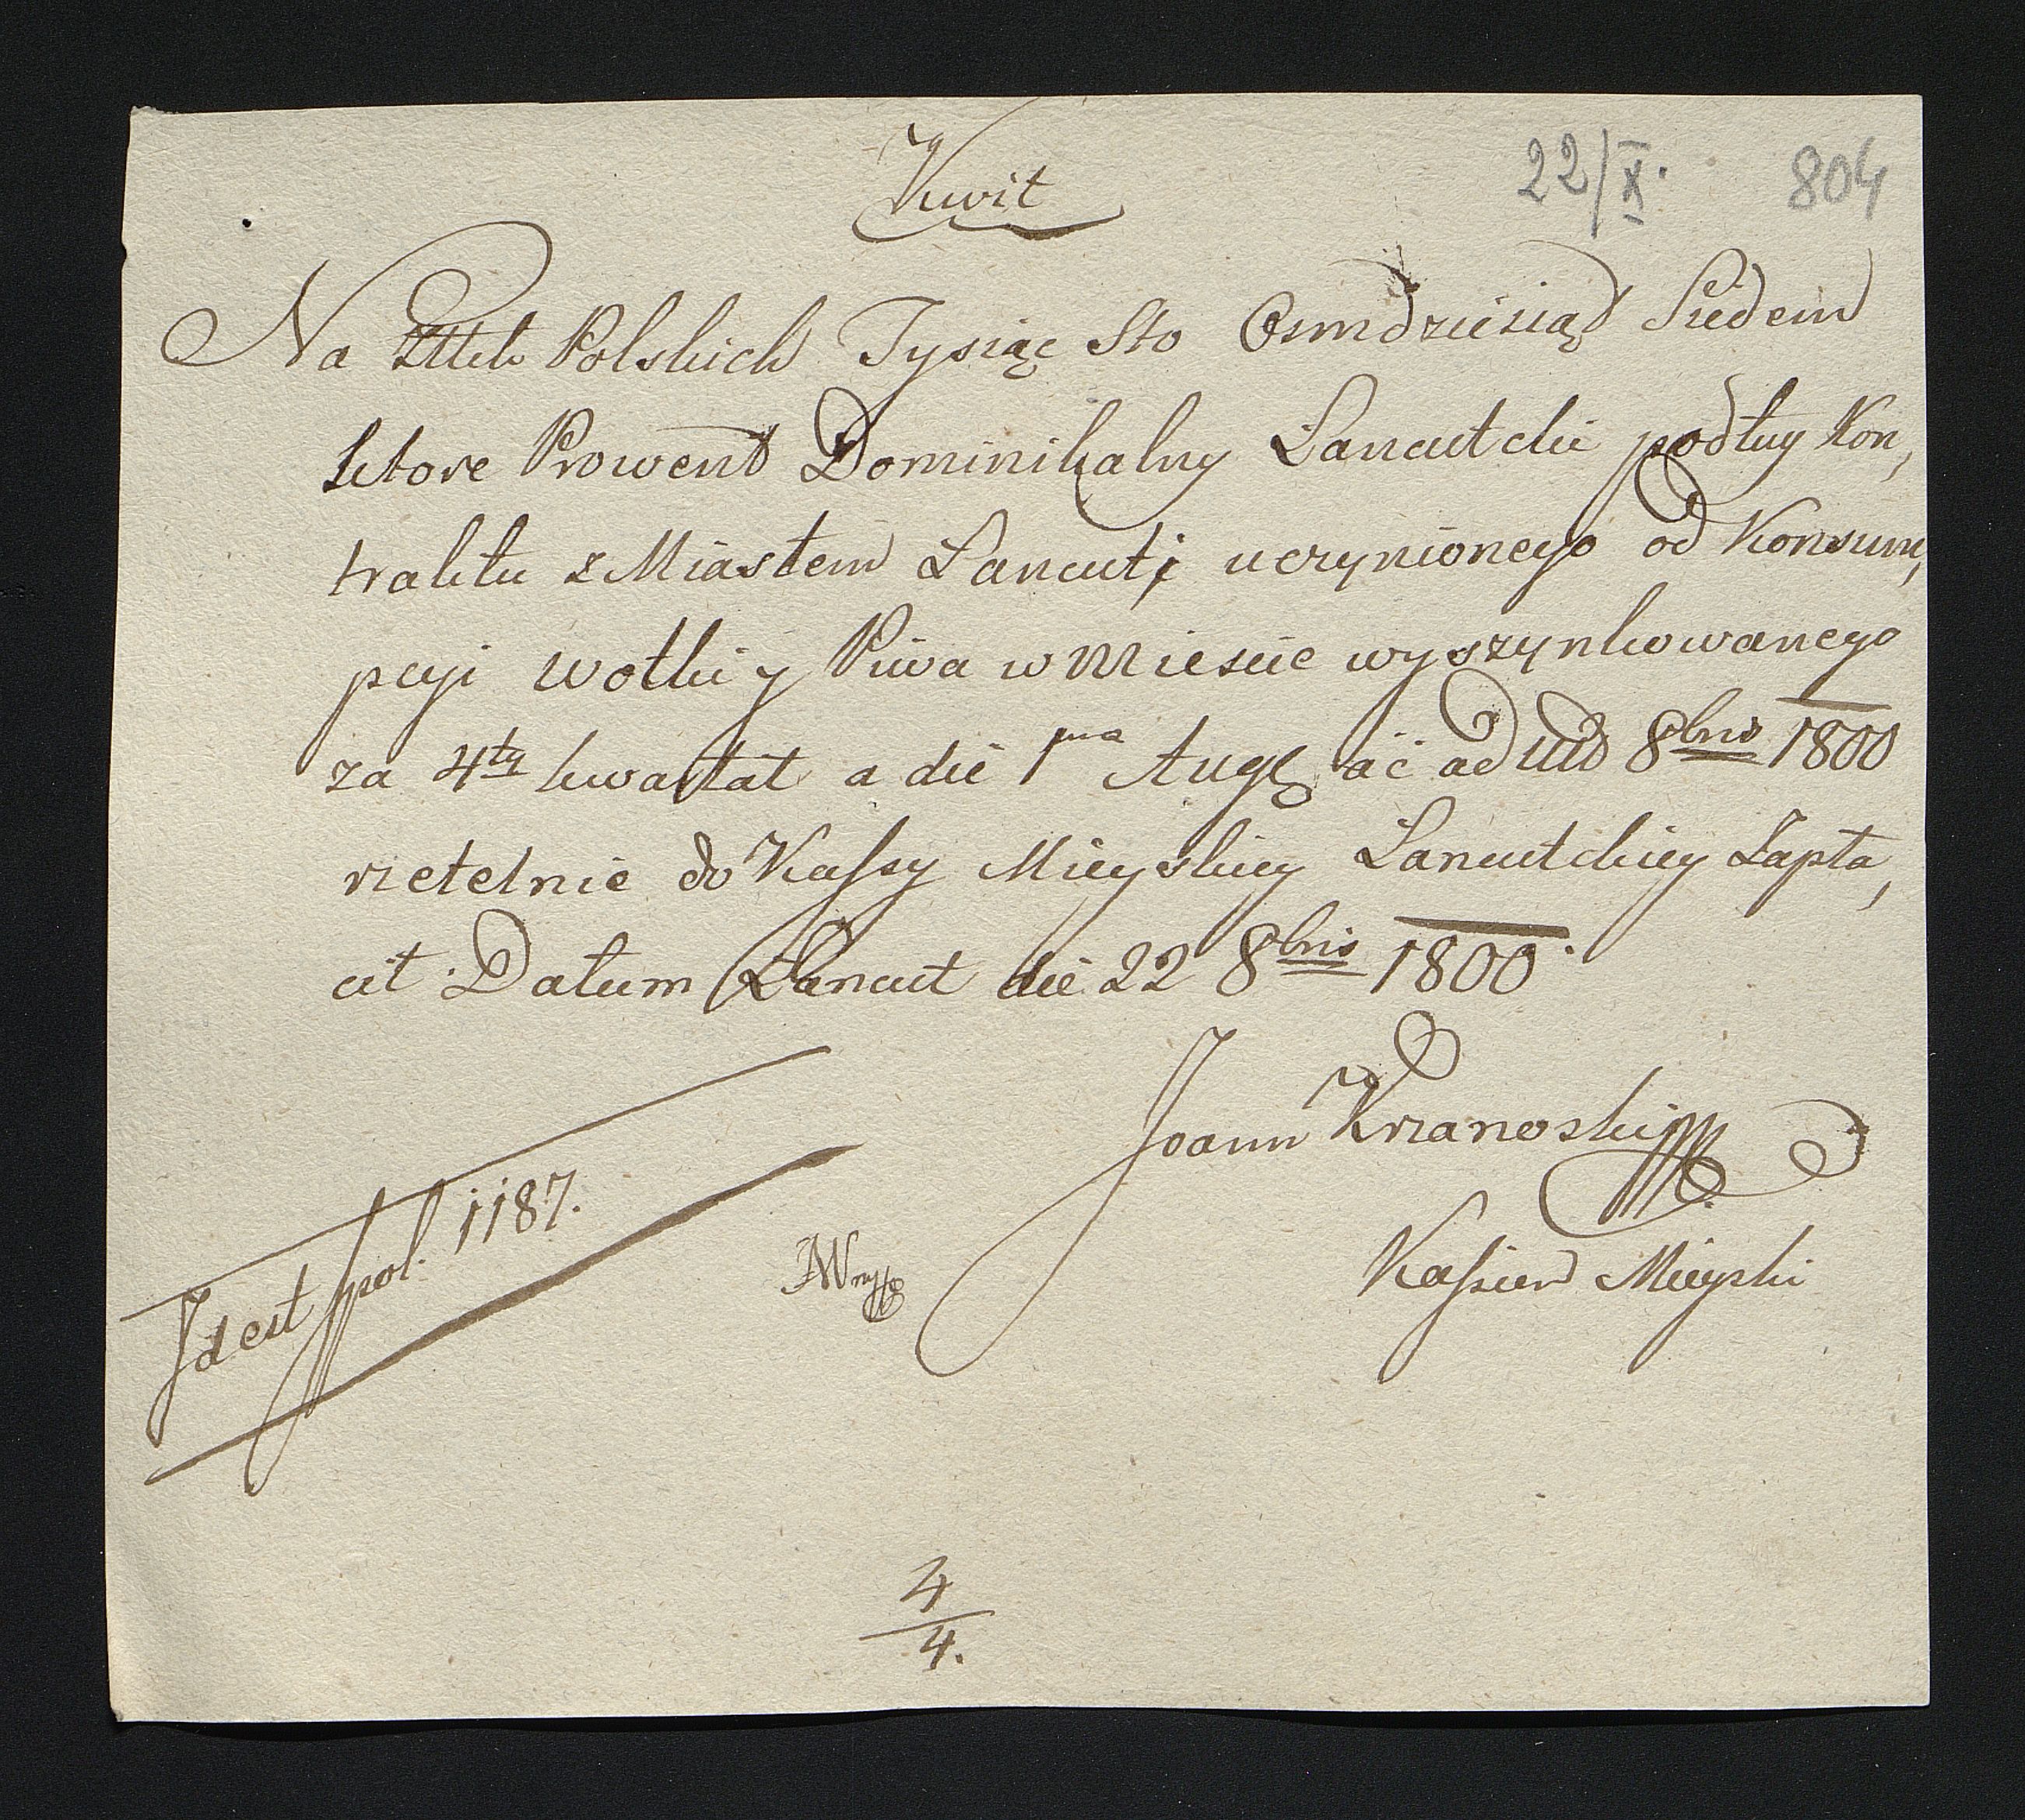 Kwit
22/X. 804
Na Złłch Polskich Tysiąc Sto Osmdziesiąt Siedem
ktore Prowent Dominikalny Łancutcki podług Kon,
traktu z Miastem Łancut, uczynionego od Konsum,
pcyi wotki y Piwa w Miescie wyszynkowanego
za 4ty kwartał a die 1ma Aug ac ad 8bris 1800
rzetelnie do Kassy Mieyskiey Łancutckiey Zapła,
cił. Datum Łancut die 22 8bris 1800.
Joann Krzanoski
Id est fpol. 1187.
Kassier Mieyski
4
4.